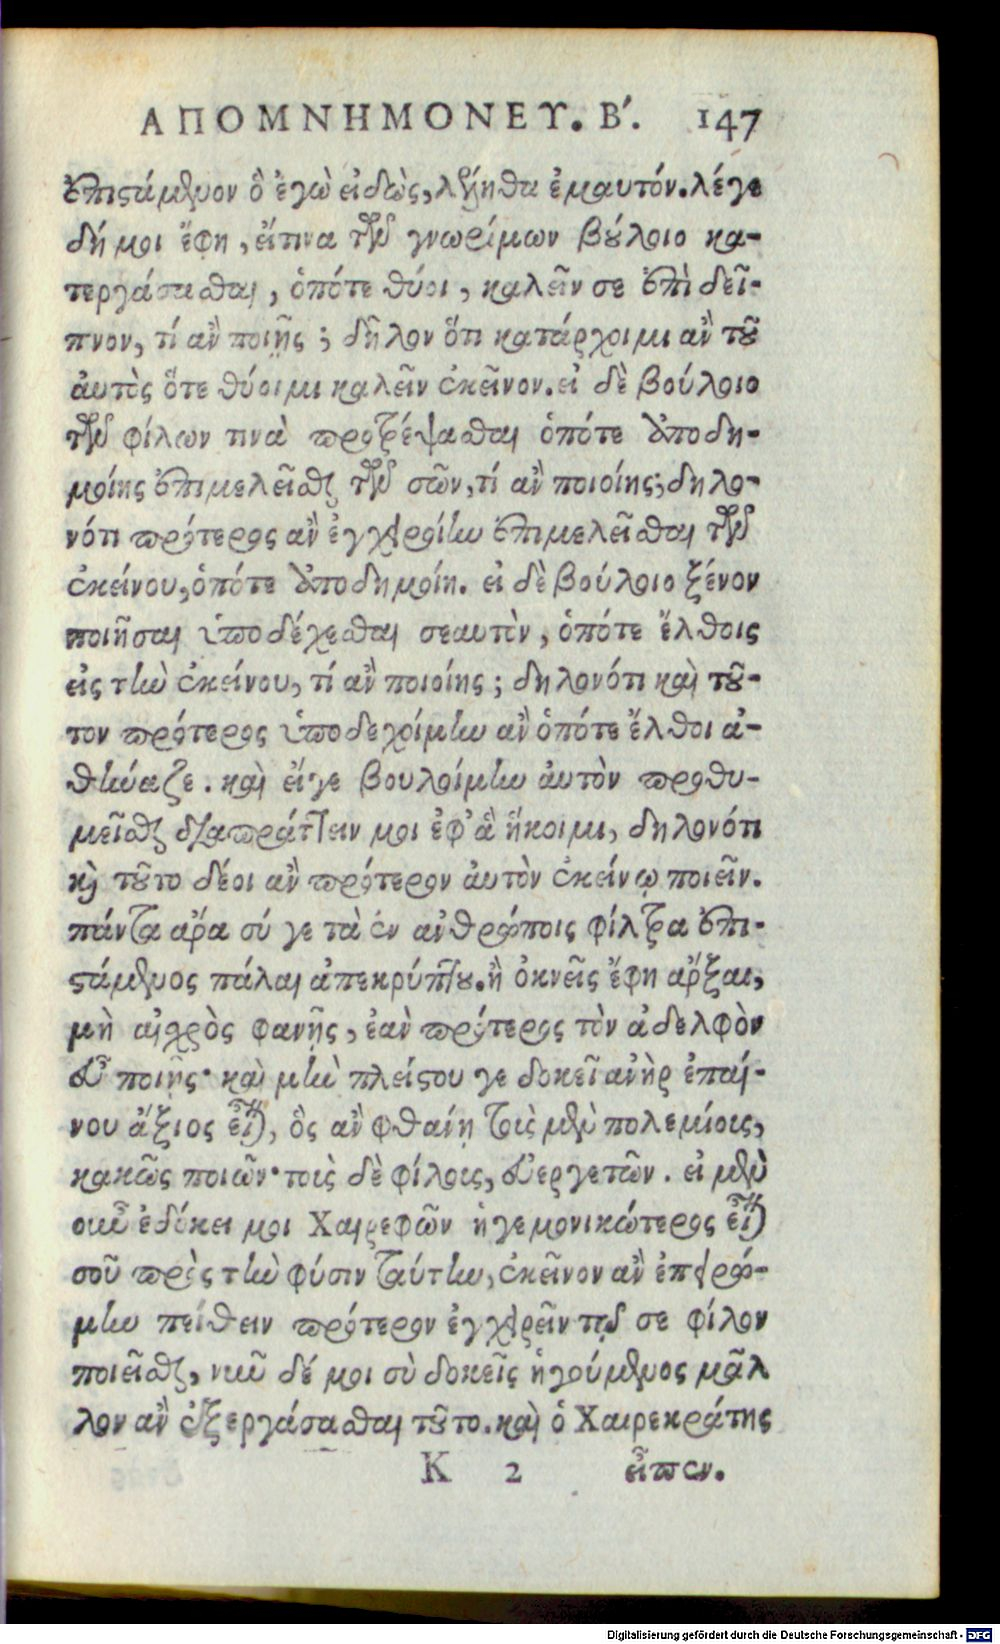 ΑΠΟΜΝΗΜΟΝΕΥ. Β´. 147
ἐπιστάμενον ὃ ἐγὼ εἰδὼς, λέληθα ἐμαυτόν. λέγε
δή μοι ἔφη, εἴ τινα τῶν γνωρίμων βούλοιο κα-
τεργάσασθαι, ὁπότε θύοι, καλεῖν σε ἐπὶ δεῖ-
πνον, τί ἂν ποιῇς; δῆλον ὅτι κατάρχοιμι ἂν τοῦ
αὐτὸς ὅτε θύοιμι καλεῖν ἐκεῖνον. εἰ δὲ βούλοιο
τῶν φίλων τινὰ προτρέψασθαι ὁπότε ἀποδη-
μοίης ἐπιμελεῖσθαι τῶν σῶν, τί ἂν ποιοίης; δηλο-
νότι πρότερος ἂν ἐγχειροίην ἐπιμελεῖσθαι τῶν
ἐκείνου, ὁπότε ἀποδημοίη. εἰ δὲ βούλοιο ξένον
ποιῆσαι ὑποδέχεσθαι σεαυτὸν, ὁπότε ἔλθοις
εἰς τὴν ἐκείνου, τί ἂν ποιοίης; δηλονότι καὶ τοῦ-
τον πρότερος ὑποδεχοίμην ἂν ὁπότε ἔλθοι ἀ-
θήναζε. καὶ εἴγε βουλοίμην αὐτὸν προθυ-
μεῖσθαι διαπράττειν μοι ἐφ' ἃ ἥκοιμι, δηλονότι
καὶ τοῦτο δέοι ἂν πρότερον αὐτὸν ἐκείνῳ ποιεῖν.
πάντα ἄρα σύ γε τὰ ἐν ἀνθρώποις φίλτρα ἐπι-
στάμενος πάλαι ἀπεκρύπτου. ἢ ὀκνεῖς ἔφη ἄρξαι,
μὴ αἰσχρὸς φανῇς, ἐὰν πρότερος τὸν ἀδελφὸν
εὖ ποιῇς· καὶ μὴν πλείστου γε δοκεῖ ἀνὴρ ἐπαί-
νου ἄξιος εἶναι, ὃς ἂν φθαίνῃ τοὺς μὲν πολεμίους,
κακῶς ποιῶν· τοὺς δὲ φίλους, εὐεργετῶν. εἰ μὲν
οὖν ἐδόκει μοι Χαιρεφῶν ἡγεμονικώτερος εἶναι
σοῦ πρὸς τὴν φύσιν ταύτην, ἐκεῖνον ἂν ἐπειρώ-
μην πείθειν πρότερον ἐγχειρεῖν τῷ σε φίλον
ποιεῖσθαι, νῦν δέ μοι σὺ δοκεῖς ἡγούμενος μᾶλ
λον ἂν ἐξεργάσασθαι τοῦτο. καὶ ὁ Χαιρεκράτης
Κ 2 εἶπεν.
Digitalisierung gefördert durch die Deutsche Forschungsgemeinschaft - DFG